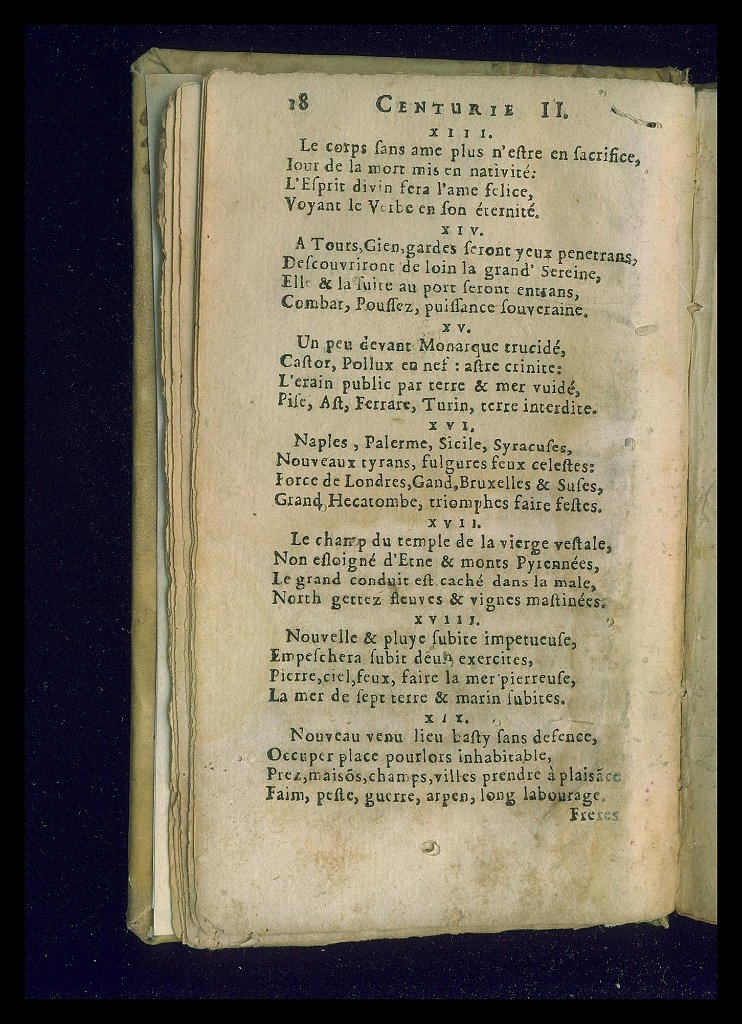 18 CENTURIE II.
XIII.
Le corps ſans ame plus n'eſtre en ſacrifice,
Iour de la mort mis en nativité:
L'Eſprit divin fera l'ame felice,
Voyant le Verbe en ſon éternité.
XIV.
A Tours,Gien,gardes ſeront yeux penetrans,
Deſcouvriront de loin la grand' Sereine,
Elle & la ſuite au port ſeront entrans,
Combat, Pouſſez, puiſſance ſouveraine.
XV.
Un peu devant Monarque trucidé,
Caſtor, Pollux en nef : aſtre crinite:
L'erain public par terre & mer vuidé,
Piſe, Aſt, Ferrare, Turin, terre interdite.
XVI.
Naples , Palerme, Sicile, Syracuſes,
Nouveaux tyrans, fulgures feux celeſtes:
Force de Londres,Gand,Bruxelles & Suſes,
Grand Hecatombe, triomphes faire feſtes.
XVII.
Le champ du temple de la vierge veſtale,
Non eſloigné d'Etne & monts Pyrennées,
Le grand conduit eſt caché dans la male,
North gettez fleuves & vignes maſtinées.
XVIII.
Nouvelle & pluye ſubite impetueuſe,
Empeſchera ſubit deux exercites,
Pierre,ciel,feux, faire la mer pierreuſe,
La mer de ſept terre & marin ſubites.
XIX.
Nouveau venu lieu baſty ſans defence,
Occuper place pourlors inhabitable,
Prez,maisõs,champs,villes prendre à plaisãce
Faim, peſte, guerre, arpen, long labourage.
Freres